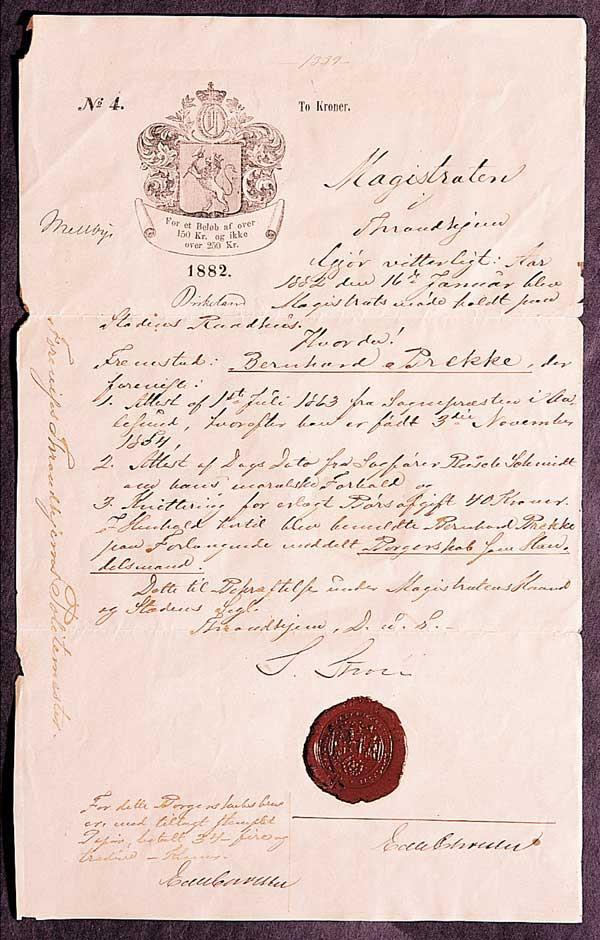 1339
No 4.
To Kroner.
For et Beløb af over
150 Kr. og ikke
over 250 Kr.
1882.
Magistraten
i
Throndhjem
Gjør vitterligt: Aar
1882 den 16de Januar blev
Magistratsmøde holdt paa
Stadens Raadhus.
Hvorda!
Fremstod: Bernhard Brekke, der
foreviste:
1. Attest af 1ste Juli 1863 fra Sognepræsten i Aa-
lesund, hvorefter han er født 3die November
1854.
2. Attest af Dags Dato fra Sagfører Schmidt
om hans moralske Forhold og
3. Kvittering for erlagt Børsafgift 40 Kroner.
I Henhold hertil blev bemeldte Bernhard Brekke
paa Forlangende meddelt Borgerskab som Han-
delsmand.
Dette til Bekræftelse under Magistratens Haand
og Stadens Segl.
Throndhjem, D. u. S.
Forevist Throndhjems Politimester.
For dette Borgerskabsbrev
er, med tillagt stemplet
Papir, betalt 34 fire og
tredive Kroner.